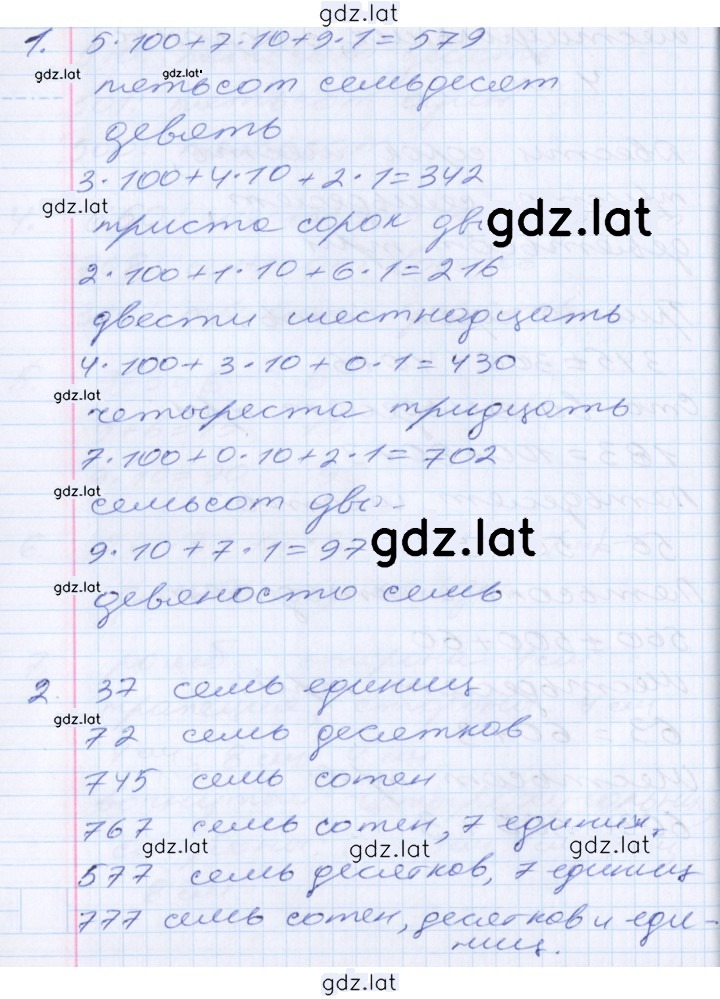 gdz.lat
1. 5·100+7·10+9·1=579
gdz.lat gdz.lat
пятьсот семьдесят
девять
3·100+4·10+2·1=342
gdz.lat
триста сорок gdz.lat
2·100+1·10+6·1=216
двести шестнадцать
4·100+3·10+0·1=430
gdz.lat
четыреста тридцать
7·100+0·10+2·1=702
gdz.lat
семьсот два
9·10+7·1=97 gdz.lat
gdz.lat
девяносто семь
2. 37 семь единиц
gdz.lat
72 семь десятков
745 семь сотен
767 семь сотен, 7 единиц.
gdz.lat gdz.lat gdz.lat
577 семь десятков, 7 единиц
777 семь сотен, десятков и еди-
ниц.
gdz.lat